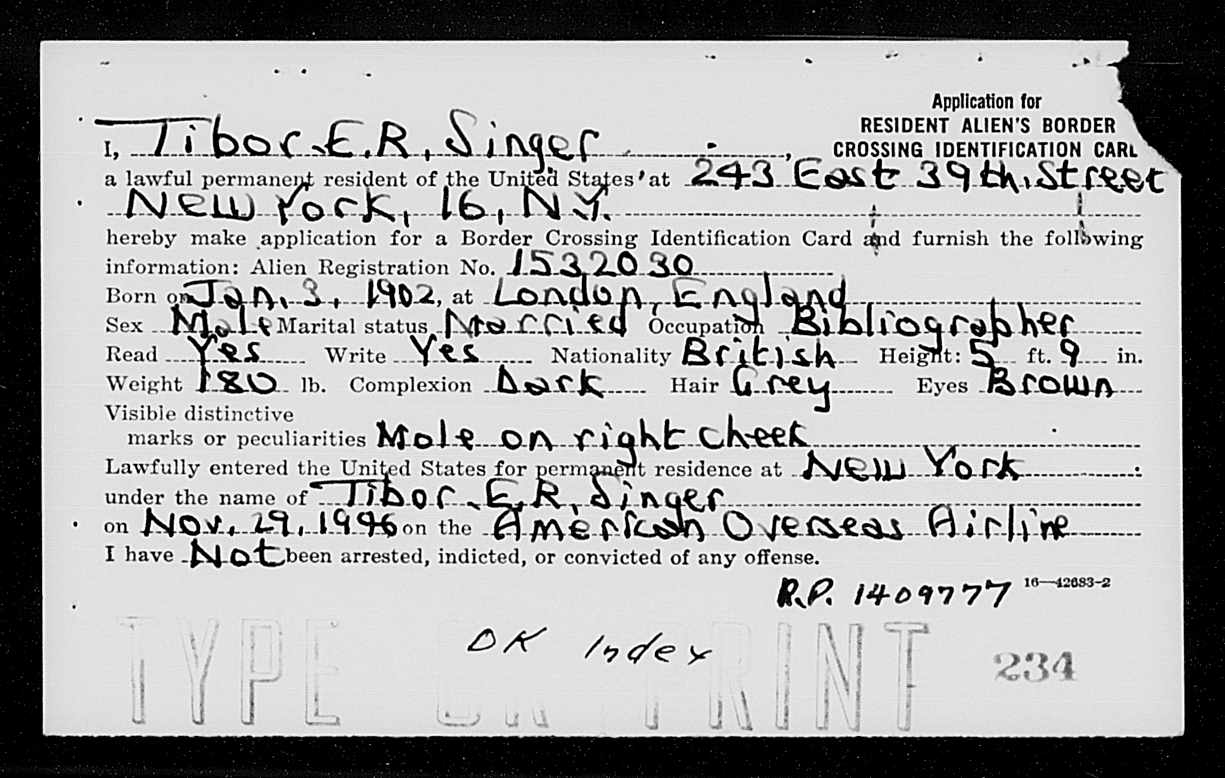 Application for
RESIDENT ALIEN'S BORDER
CROSSING IDENTIFICATION CARD
I, Tibor E.R. Singer,
a lawful permanent resident of the United States at 243 East 39th. Street
New York, 16, N.Y.
hereby make application for a Border Crossing Identification Card and furnish the following
information: Alien Registration No. 1532030
Born on Jan. 3, 1902, at London, England
Sex Male Marital status Married Occupation Bibliographer
Read Yes Write Yes Nationality British Height: 5 ft. 9 in.
Weight 180 lb. Complexion Dark Hair Grey Eyes Brown
Visible distinctive
marks or peculiarities Mole on right cheek
Lawfully entered the United States for permanent residence at New York
under the name of Tibor E.R. Singer
on Nov. 29, 1946 on the American Overseas Airline
I have Not been arrested, indicted, or convicted of any offense.
R.P. 1409777 16—42683-2
OK Index
TYPE OR PRINT
234